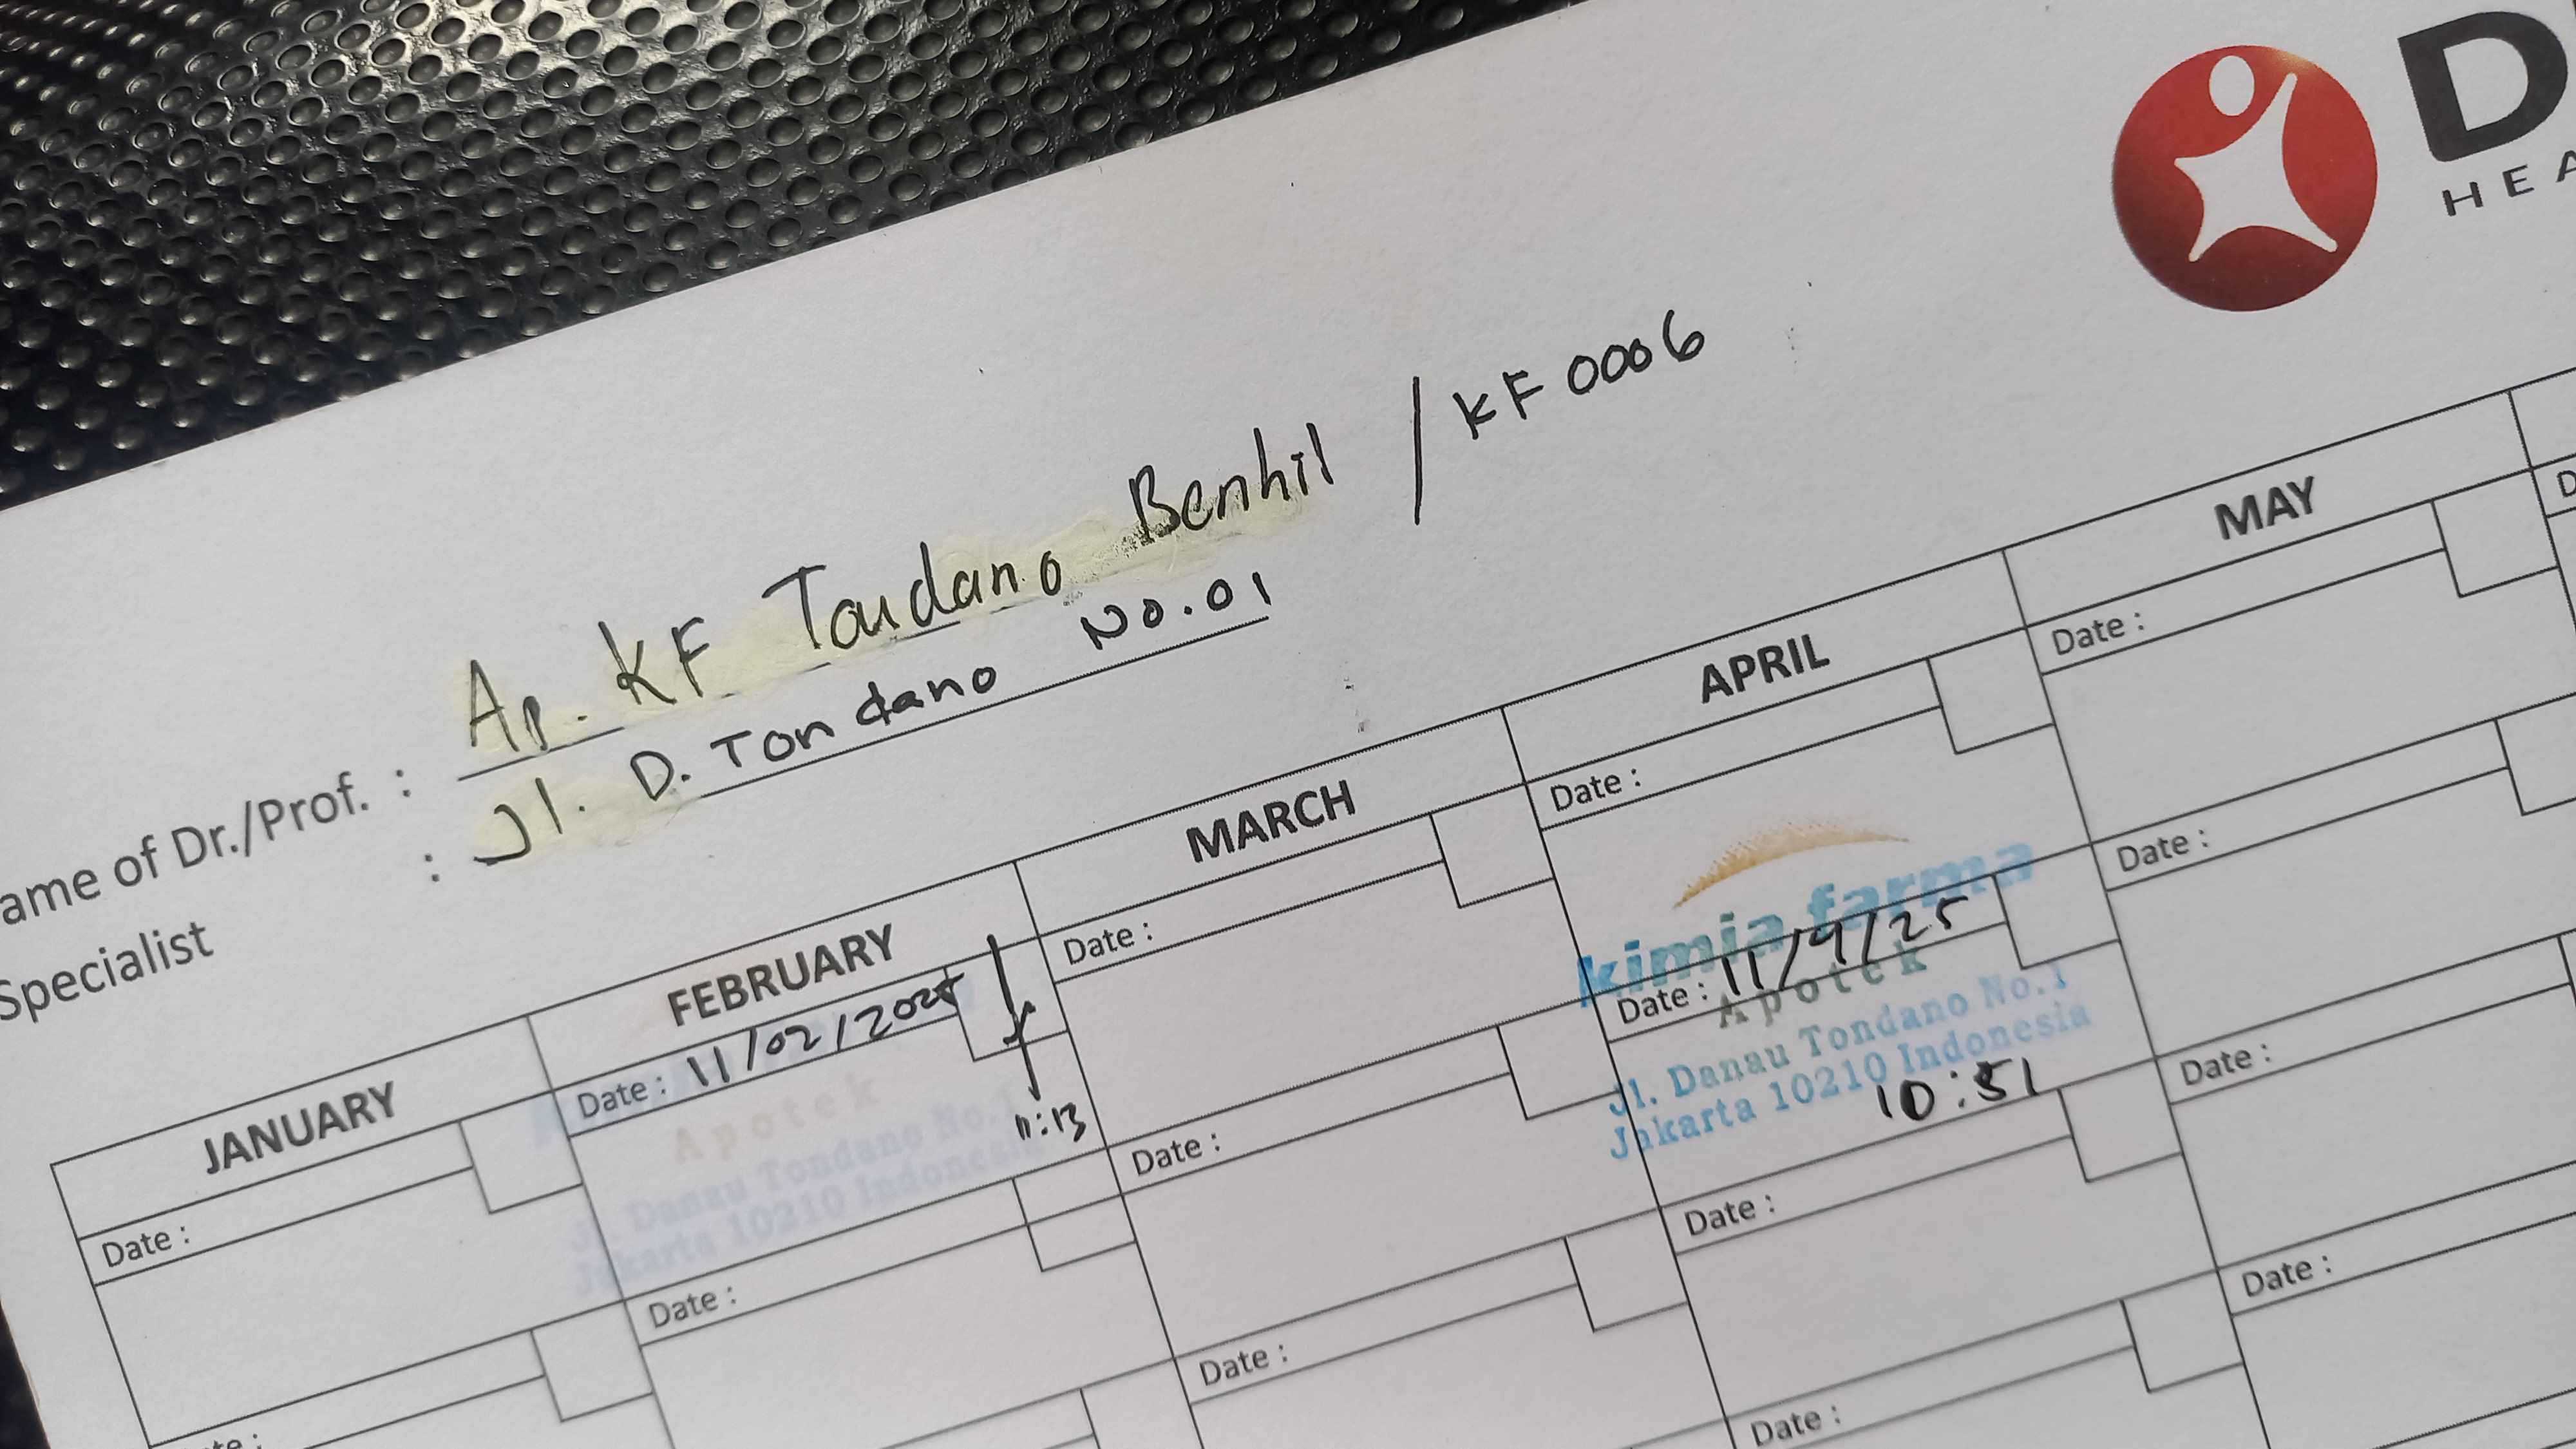 D
HEA
ame of Dr./Prof. : Ap. KF Tondano Benhil / KF 0006
Specialist : Jl. D. Tondano No. 01
JANUARY FEBRUARY MARCH APRIL MAY
Date :
Date : 11/02/2025
11:13
Apotek
Jl. Danau Tondano No.1
Jakarta 10210 Indonesia
Date :
Date :
Date :
Date :
Date :
Date :
kimia farma
Date : 11/4/25
Apotek
Jl. Danau Tondano No.1
Jakarta 10210 Indonesia
10:51
Date :
Date :
Date :
Date :
Date :
Date :
D